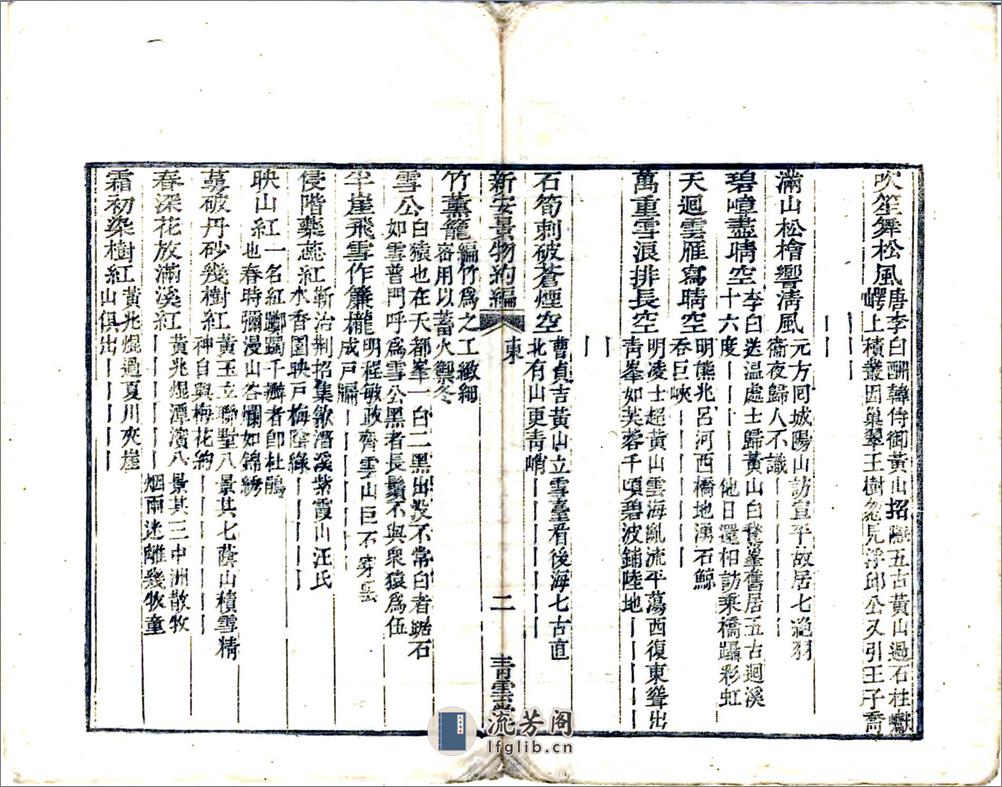 吹笙舞松風唐李白酬韓侍御黃山招隱五古黃山過石柱巘
崿上積叢因巢翠玉樹忽見浮邱公又引王子喬
｜｜｜｜｜
滿山松檜響清風元方回城陽山訪宣平故居七絕羽
衞夜歸人不識｜｜｜｜｜｜｜
碧嶂盡晴空李白送溫處士歸黃山白鵞峯舊居五古迴溪
十六度｜｜｜｜｜他日還相訪乘橋躡彩虹
天迴雲雁寫晴空明熊兆呂河西橋地湧石鯨
吞巨峽｜｜｜｜｜｜｜
萬重雪浪排長空明凌士超黃山雲海亂流平蕩西復東聳出
靑峯如芙蓉千頃碧波鋪陸地｜｜｜｜｜
｜｜
石筍刺破蒼煙空曹貞吉黃山立雪臺看後海七古直
北有山更靑峭｜｜｜｜｜｜｜
新安景物約編 東 二 青雲
竹薰籠編竹爲之工緻細
密用以蓄火禦冬
雪公白猿也在天都峯一白二黑出沒不常白者踞石
如雪普門呼爲雪公黑者長鬚不與衆猿爲伍
半崖飛雪作簾櫳明程敏政齊雲山巨不穿
成戸牖｜｜｜｜｜｜｜
侵階藥蕊紅靳治荆招集歙潛溪紫霞山汪氏
水香園映戸梅陰綠｜｜｜｜｜
映山紅一名紅躑躅千瓣者卽杜鵑
也春時彌漫山谷爛如錦綉
蕚破丹砂幾樹紅黃玉立聯墅八景其七蔭山積雪精
神自與梅花約｜｜｜｜｜｜｜
春深花放滿溪紅黃兆焜潭濱八景其三中洲散牧
｜｜｜｜｜｜｜烟雨迷離幾牧童
霜初染樹紅黃兆焜過夏川夾崖
山俱出｜｜｜｜｜
流芳阁
lfglib.cn